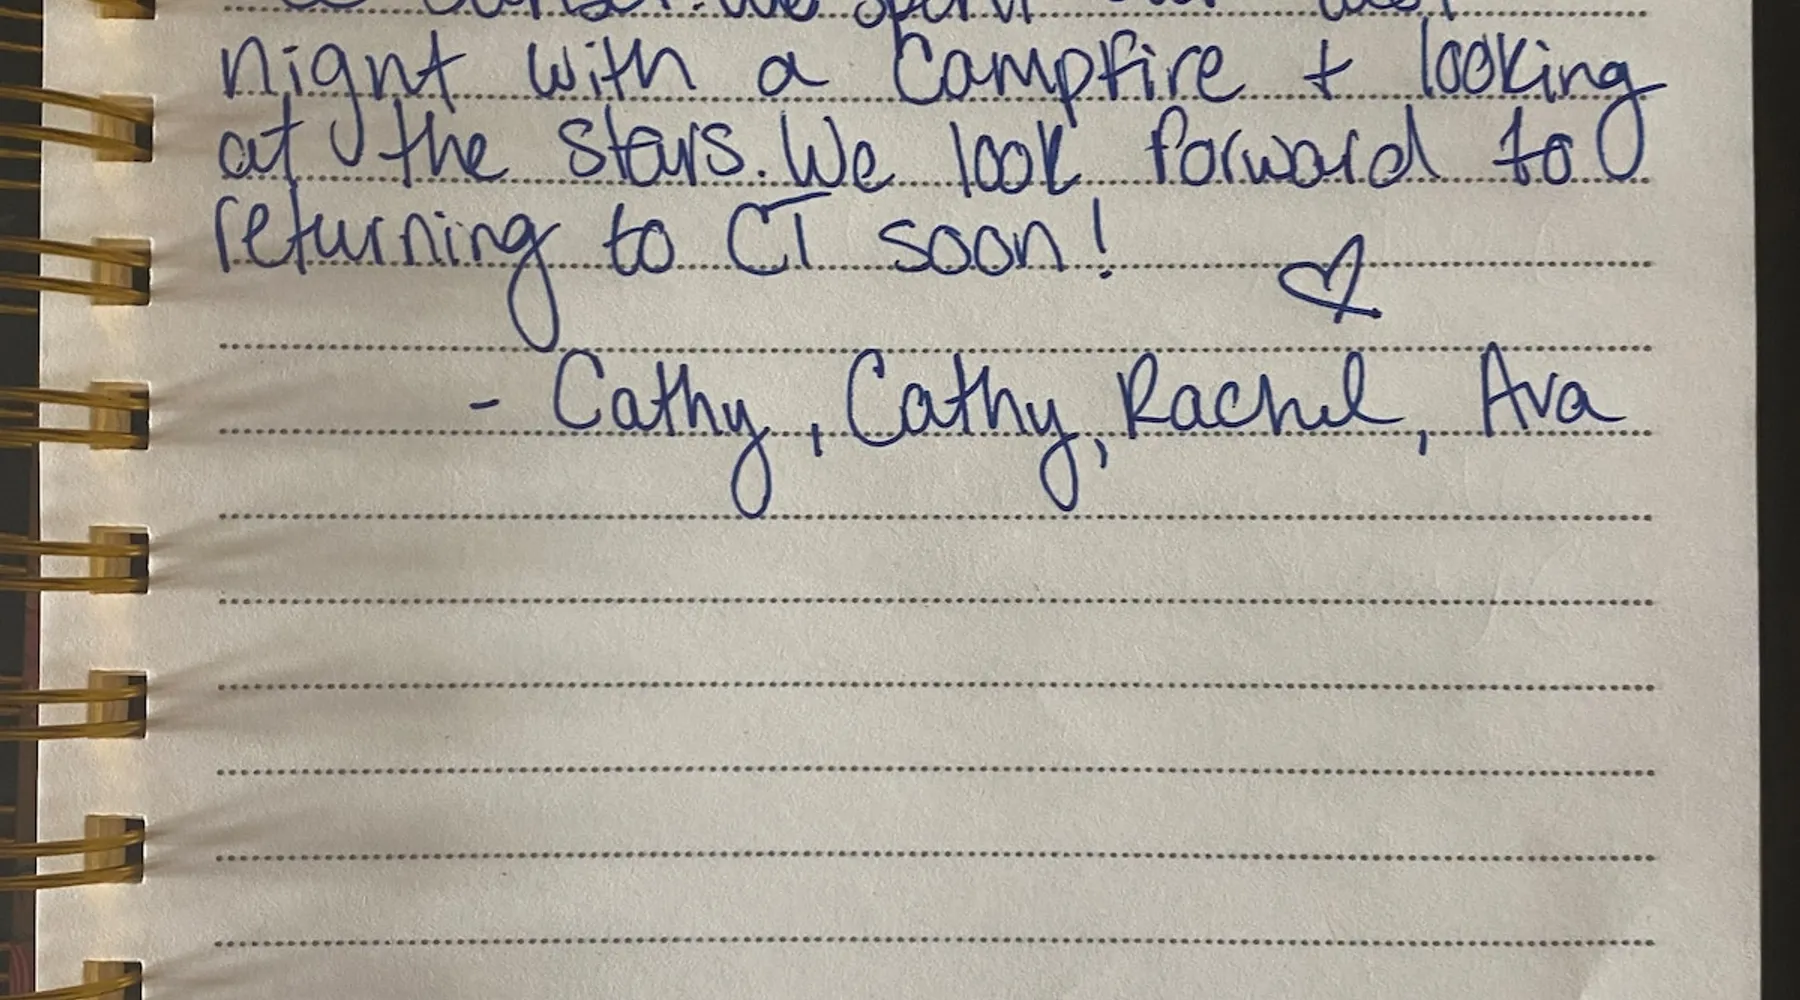 sunset. We spent our last
night with a campfire + looking
at the stars. We look forward to
returning to CT soon!
- Cathy, Cathy, Rachel, Ava